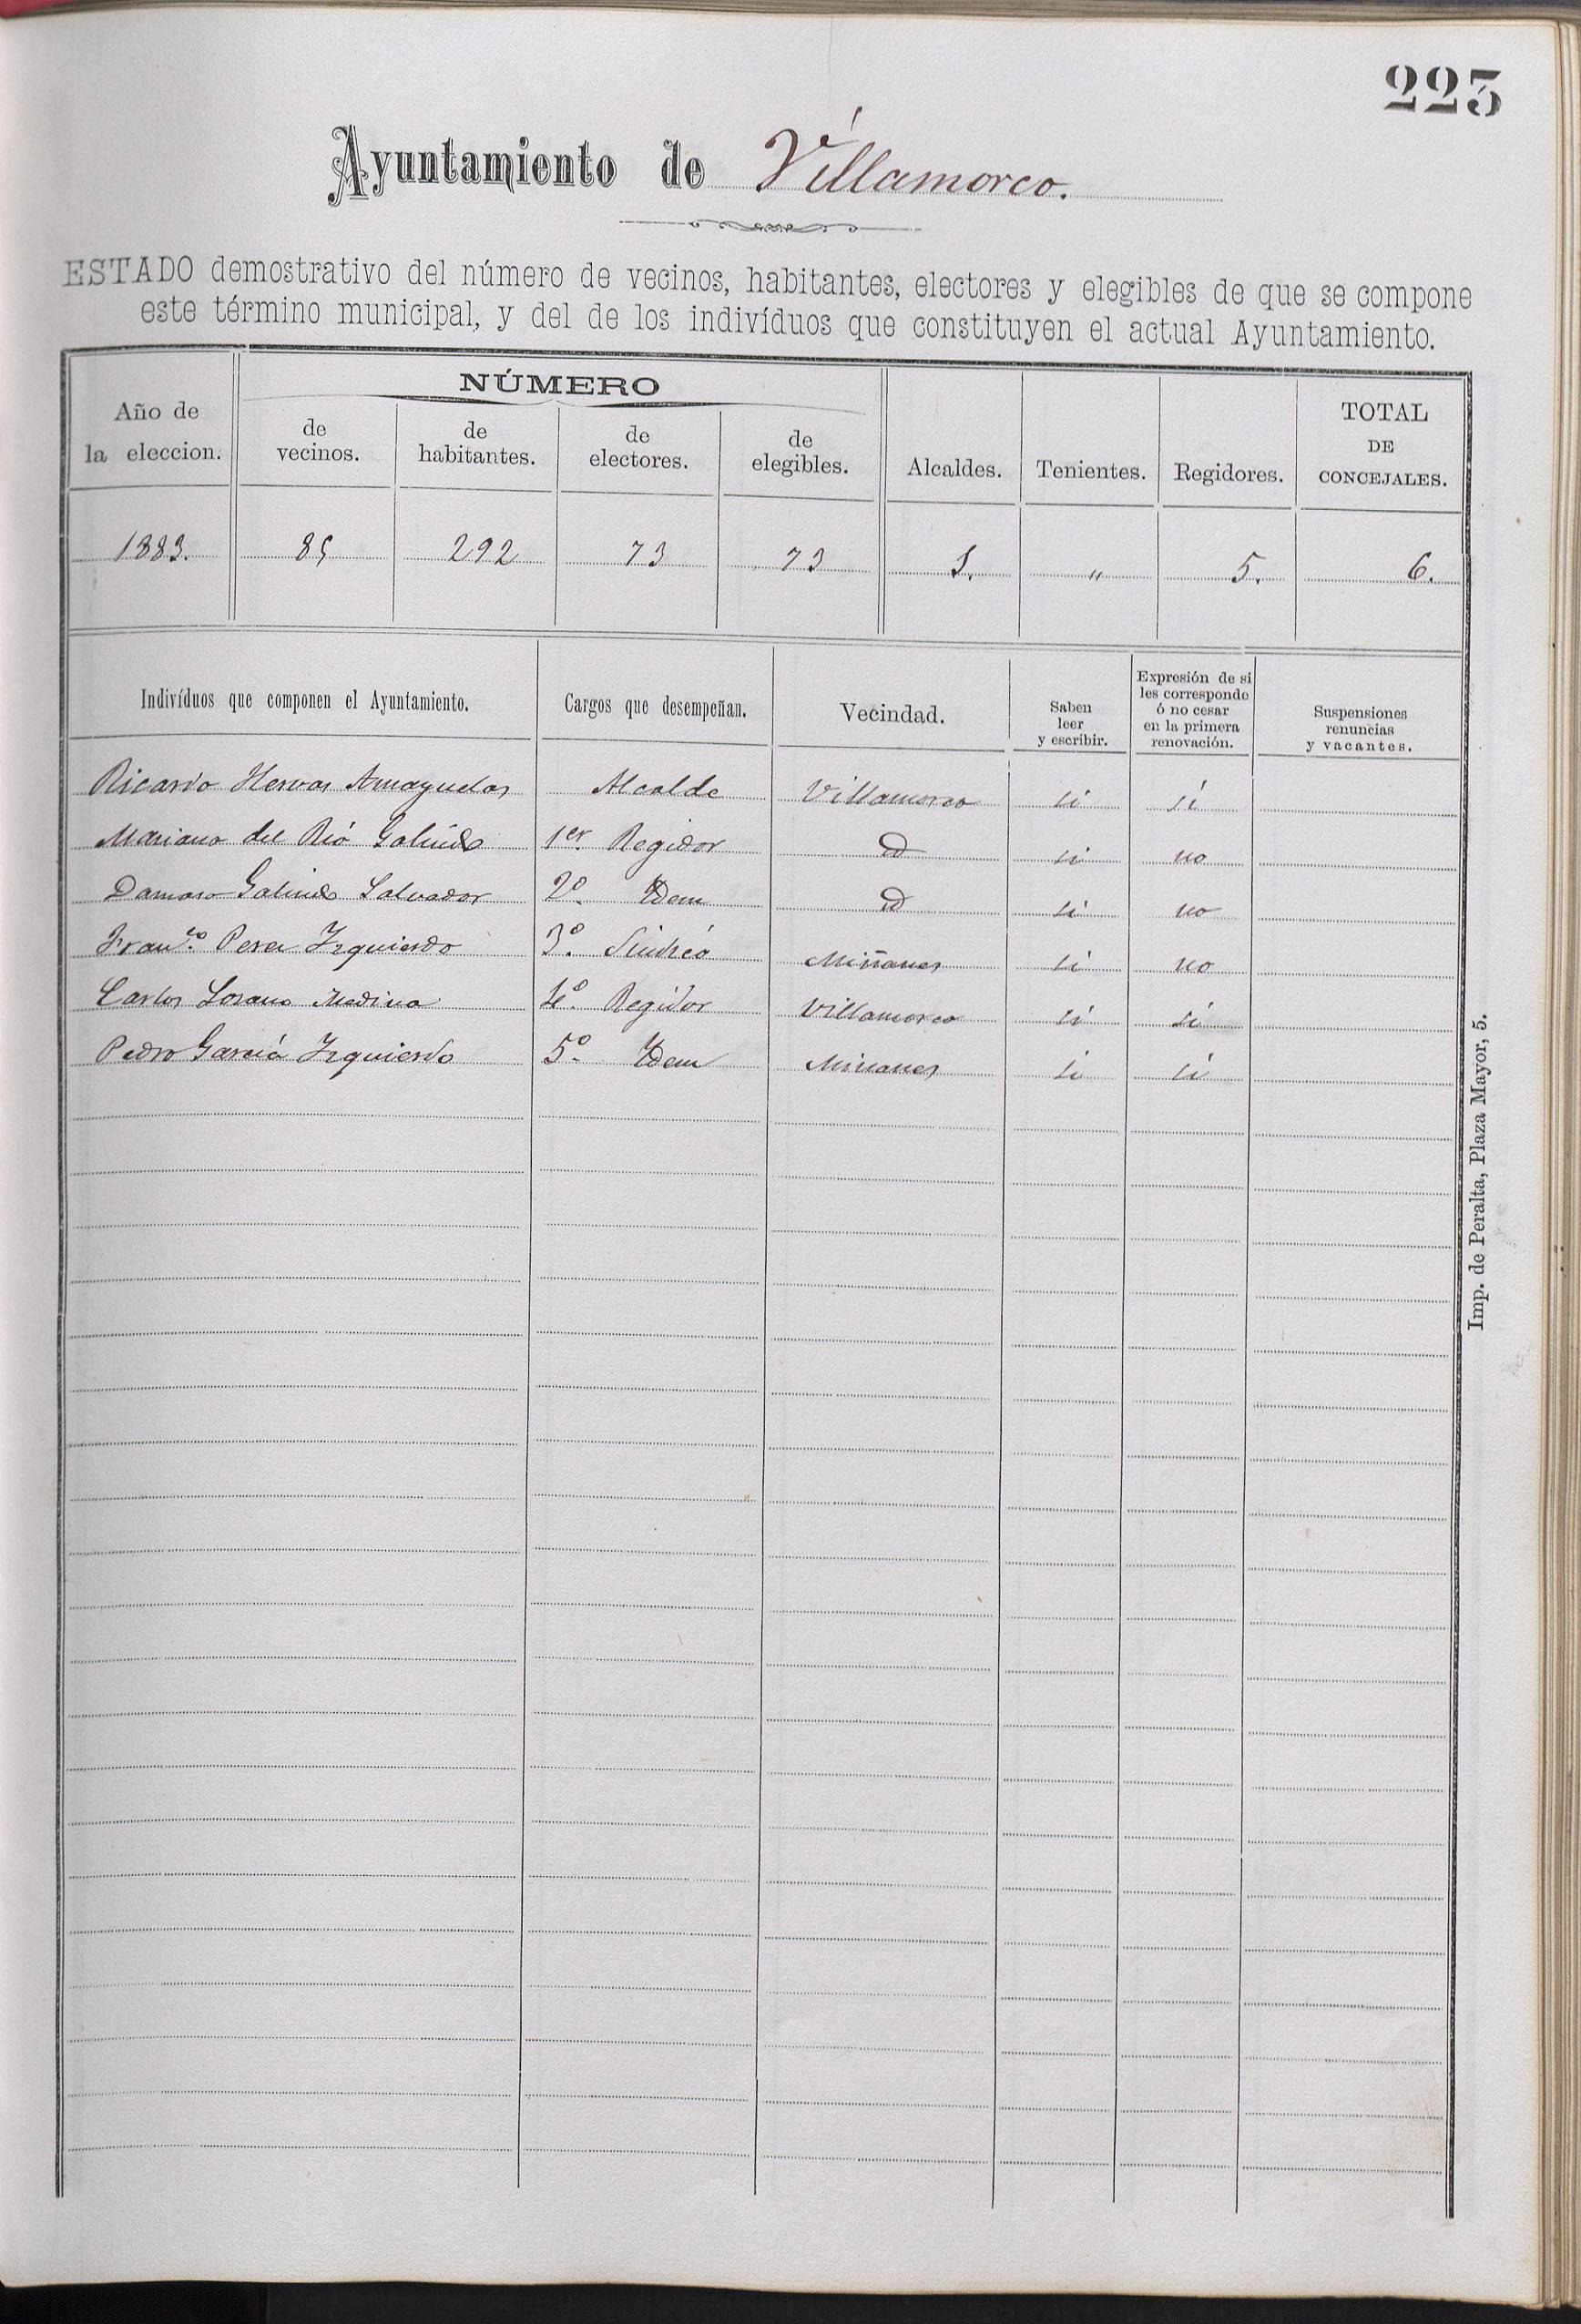 223
Ayuntamiento de Villamorco.
ESTADO demostrativo del número de vecinos, habitantes, electores y elegibles de que se compone
este término municipal, y del de los indivíduos que constituyen el actual Ayuntamiento.
Año de la eleccion. NÚMERO de vecinos. de habitantes. de electores. de elegibles. Alcaldes. Tenientes. Regidores. TOTAL DE CONCEJALES.
1883. 85 292 73 73 1. " 5. 6.
Indivíduos que componen el Ayuntamiento. Cargos que desempeñan. Vecindad. Saben leer y escribir. Expresión de si les corresponde ó no cesar en la primera renovación. Suspensiones renuncias y vacantes.
Ricardo Hervas Amayuelas Alcalde Villamorco si sí
Mariano del Rió Galindo 1er. Regidor id si no
Damaso Galindo Salvador 2º. Idem id si no
Franco. Perez Izquierdo 3º. Sindico Miñanes si no
Carlos Lozano Medina 4º. Regidor Villamorco si si
Pedro Garcia Izquierdo 5º. Idem Minanes si si
Imp. de Peralta, Plaza Mayor, 5.